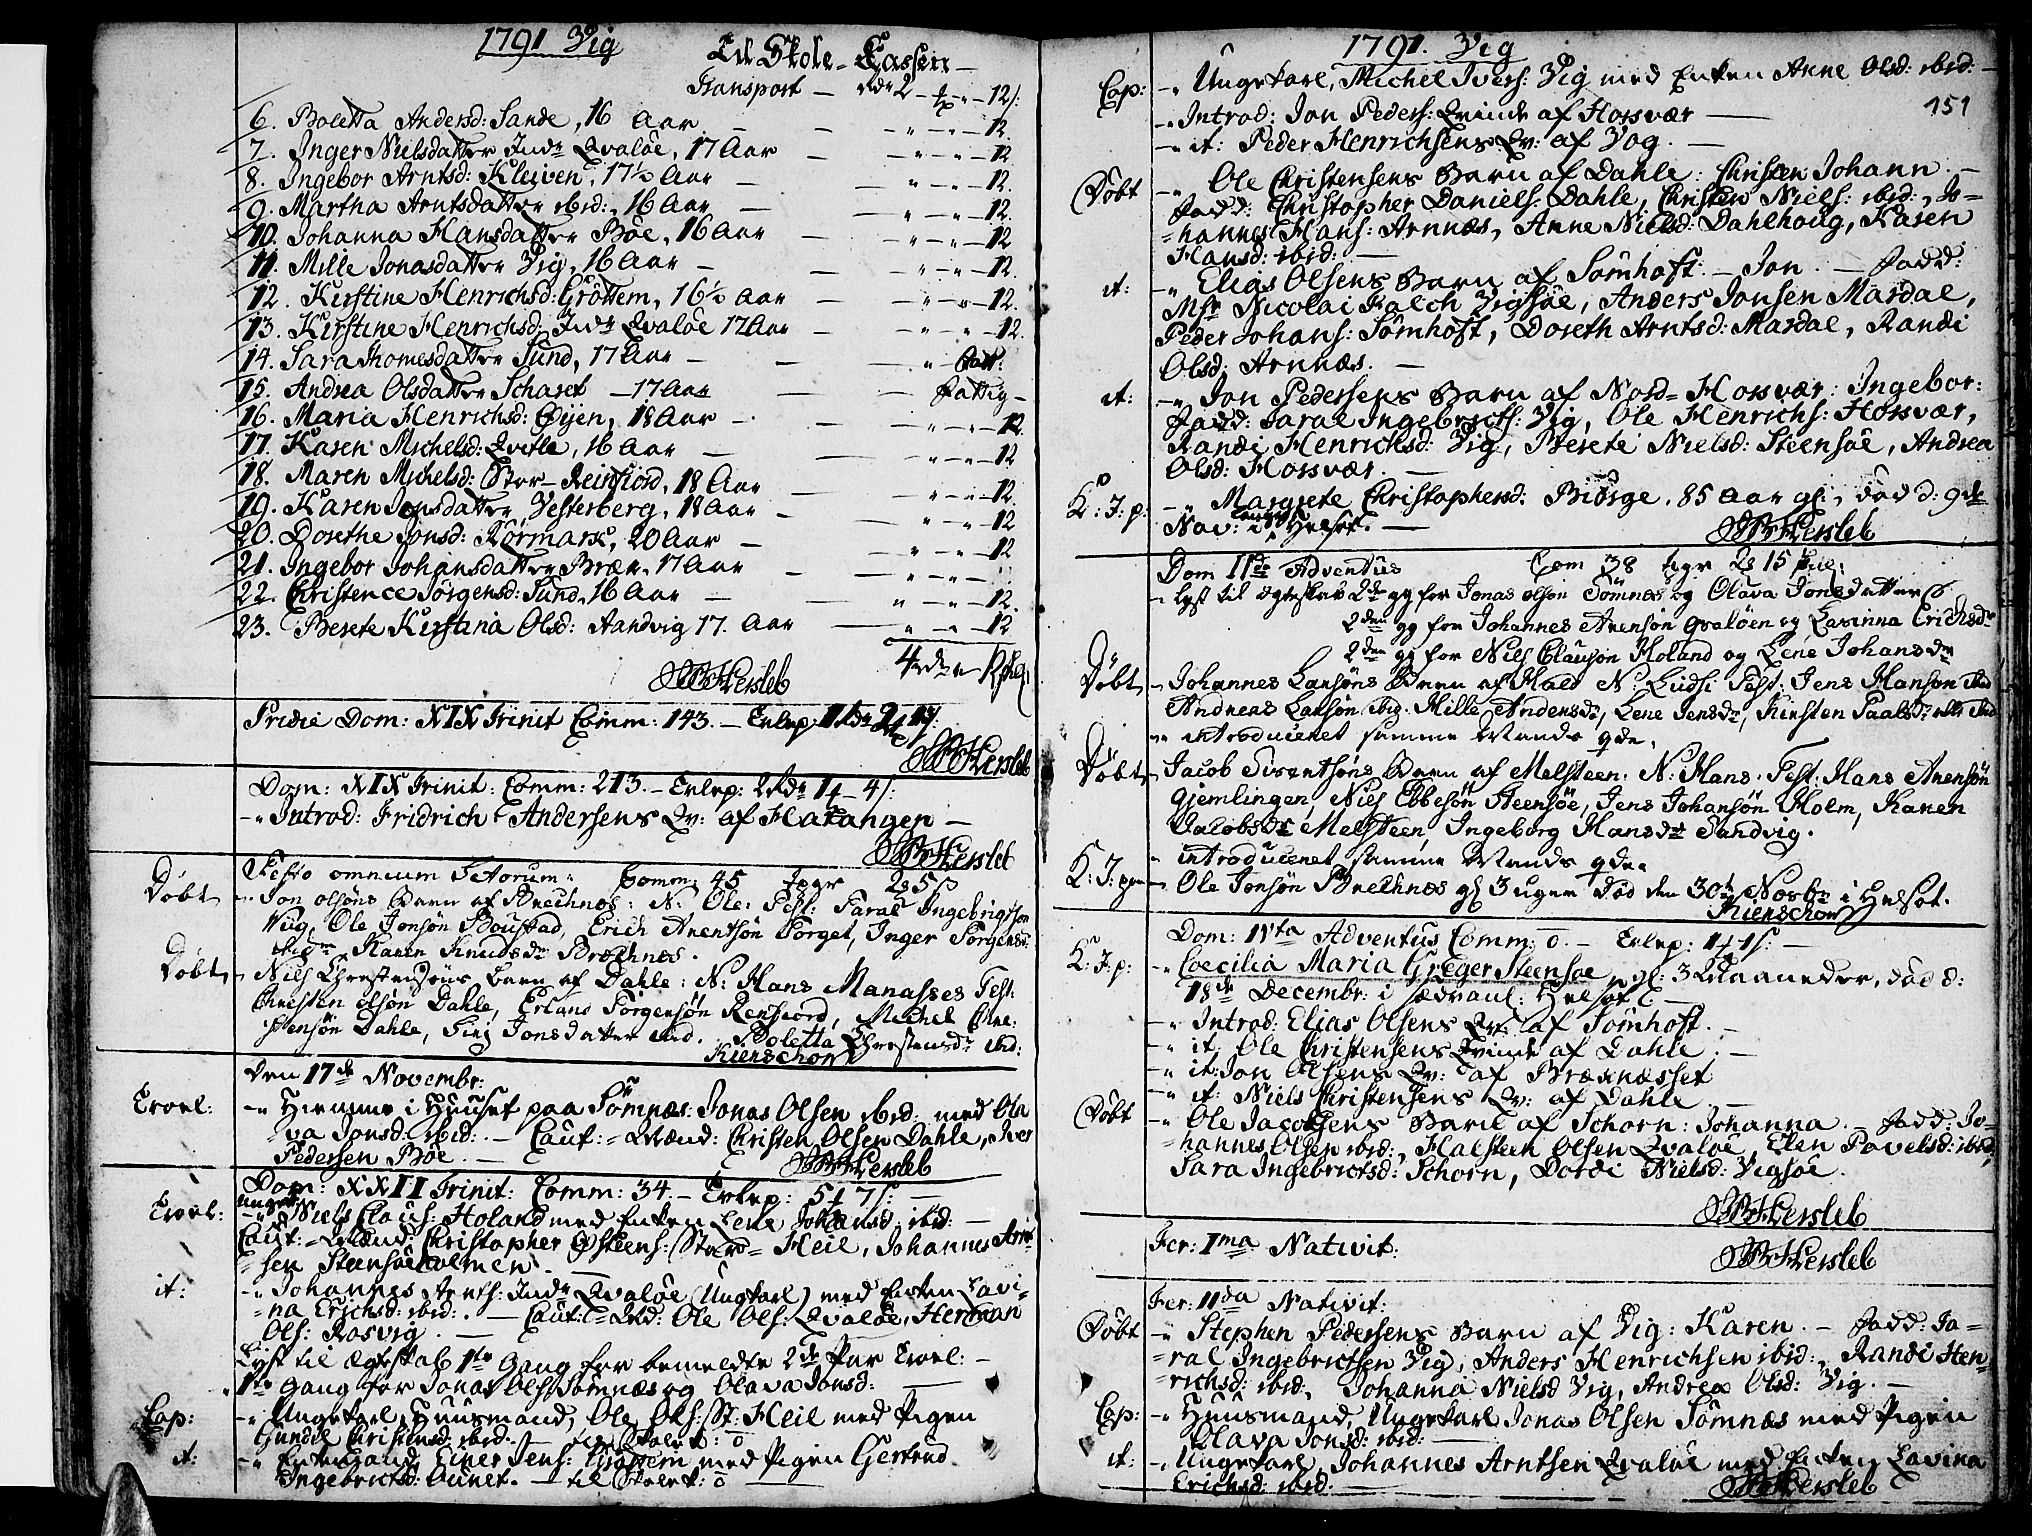 1791 Vig
Til Skole-Cassen
Transport — Rdr 2 - 12 s:
6. Boletta Andersd: Sande, 16 Aar — 12.
7. Inger Nielsdatter Indr Qvaløe, 17 Aar — 12
8. Ingebor Arntsd: Kleiven, 17½ Aar — 12.
9. Martha Arntsdatter ibid:, 16 Aar — 12
10. Johanna Hansdatter Bøe, 16 Aar — 12
11. Mille Jonasdatter Vig, 16 Aar — 12.
12. Kirstine Henrichsd: Grøttem, 16½ Aar — 12.
13. Kirstine Henrichsd: Indr Qvaløe 17 Aar — 12.
14. Sara Thomesdatter Sund, 17 Aar — fatt:
15. Andrea Olsdatter Scharet — 17 Aar — fattig —
16. Maria Henrichsd: Øyen, 18 Aar — 12.
17. Karen Michelsd: Qvitle, 16 Aar — 12
18. Maren Michelsd: Stor-Reinfiord, 18 Aar — 12.
19. Karen Jonsdatter Vesterberg, 18 Aar — 12
20. Dorethe Jonsd: Rørmark, 20 Aar — 12
21. Ingebor Johansdatter Bræk, 17 Aar —
22. Christence Jørgensd: Sund, 16 Aar — 12.
23. Berete Kirstina Olsd: Aandvig 17. Aar — 12
JBHersleb
Pridie Dom: XIX Trinit Comm: 143. —
JBHersleb
Dom: XIX Trinit: Comm: 213. —
-„ Introd: Fridrich Andersens Qv: af Hatangen —
JBHersleb
Festo omnium Sctorum: Comm: 45
Døbt -„ Jon Olsøns Barn af Brechnes: N: Ole: Test: Saral Ingebrigtsøn
Viig, Ole Jonsøn Boustad, Erich Arentsøn Torget, Inger Jørgensd:
Karen Knudsdr Brechnes.
Døbt Niels Christensøns Barn af Dahle: N: Hans Manasses Test:
Christen Olsøn Dahle, Erland Jørgensøn Renfiord, Michel
Dahle, Siri Jonsdatter ibid. Boletta Christensdr ibid:
Kierschow
Den 17de Novembr:
Trovl: -„ Hiemme i Huuset paa Sømnæs: Jonas Olsen ibid: med Ola
va Jonsd: ibid: — Caut:-Mænd: Christen Olsen Dahle, Iver
Pedersen Bøe. —
JBHersleb
Dom: XXII Trinit: Comm: 34. —
Trovl: Niels Claus: Holand med Enken Lene Johansd: ibid: —
Caut:-Mænd: Christopher Østeens: Stor-Heil, Johannes Arnt-
sen Steensøeholmen. —
it: -„ Johannes Arnts: Indr Qvaløe (Ungkarl) med Enken Lavi-
na Erichsd: ibid: — Caut:-Md: Ole Ols: Qvaløe, Herman
Ols: Rosvig. —
Lyst til Ægteskab 1te Gang for bemeldte 2de Par Trovl: —
1te Gang for Jonas Ols: Sømnæs og Olava Jonsd: —
Cop: -„ Ungekarl, Huusmand, Ole Ols: St: Heil med Pigen
Gundil Christensd: ibid: —
it: -„ Enkemand Einer Jens: Grøttem med Pigen Gertrud
Ingebrictsd:
1791. Vig
151
Cop: -„ Ungekarl, Michel Ivers: Vig med Enken Anne Olsd: ibid: —
-„ Introd: Jon Peders: Qvinde af Horsvær —
-„ it: Peder Henrichsens Qv: af Vog. —
Døbt -„ Ole Christensens Barn af Dahle: Christen Johann. —
Fadd: Christopher Daniels: Dahle, Christen Niels: ibid:, Jo-
hannes Hans: Arnnæs, Anne Nielsd: Dahlhoug, Karen
Hansd: ibid: —
it: -„ Elias Olsens Barn af Sømhoft. — Jon. — Fadd:
Msr Nicolai Falch Vigsøe, Anders Jonsen Mardal,
Peder Johans: Sømhoft, Doreth Arntsd: Mardal, Randi
Olsd: Arnnæs.
it: -„ Jon Pedersens Barn af Nord-Horsvær: Ingebor:
Fadd: Saral Ingebricts: Vig, Ole Henrichs: Horsvær,
Randi Henrichsd: Vig, Berete Nielsd: Steensøe, Andrea
Olsd: Horsvær. —
K: J. p: -„ Margrete Christophersd: Biørge. 85 Aar gl:, død d: 9de
Nov: i Helset. —
JBHersleb
Dom IIda Adventus Com 38
Lyst til Ægteskab 2de gg for Jonas Olsøn Sömnes og Olava Jonsdatter
2den gg for Johannes Arensøn Qvaløen og Lavinna Erichsdr
2den gg for Niels Clausøn Holand og Lene Johansdr
Døbt Johannes Larsøns Barn af Hald N: Test: Jens Hansøn ibid
Andreas Larsøn ibig. Mille Andersdr, Lene Jensdr, Kirsten Paalsdr
introduceret samme Mands qde.
Døbt Jacob Sivertsøns Barn af Melsteen. N: Hans. Test: Hans Arensøn
Gjemlingen, Niels Ebbesøn Steensøe, Jens Johansøn Holm, Karen
Jacobsdr Melsteen Ingeborg Hansdr Sandvig.
introduceret samme Mands qde.
Ole Jonsøn Brechnes gl 3 uger død den 30te Novbr i Helset.
Kierschow
Dom: IVta Adventus Comm: 0. —
K: J. p: -„ Cæcilia Maria Greger Steensøe, gl: 3 Maaneder, død d:
18de Decembr: i sædvanl: Helsot. —
-„ Introd: Elias Olsens Qv: af Sømhoft. —
-„ it: Ole Christensens Qvinde af Dahle. —
-„ it: Jon Olsens Qv: af Bræknæsset
-„ it: Niels Christensens Qv: af Dahle. —
Døbt -„ Ole Jacobsens Barn af Schorn: Johanna. — Fadd: Jo-
hannes Olsen ibid:, Halsteen Olsen Qvaløe, Elen Povelsd: ibid,
Sara Ingebrictsd: Schorn, Dordi Nielsd: Vigsøe.
JBHersleb
Fer: Ima Nativit:
JBHersleb
Fer: IIda Nativit:
Døbt -„ Stephen Pedersens Barn af Vig: Karen. — Fadd: Sa-
ral Ingebrictsen Vig, Anders Henrichsen ibid:, Randi Hen-
richsd: ibid:, Johanna Nielsd Vig, Andrea Olsd: Vig. —
Cop: -„ Huusmand, Ungekarl Jonas Olsen Sømnæs med Pigen
Olava Jonsd: ibid: —
it: -„ Ungekarl, Johannes Arntsen Qvaløe med Enken Lavina
Erichsd: ibid: —
JBHersleb